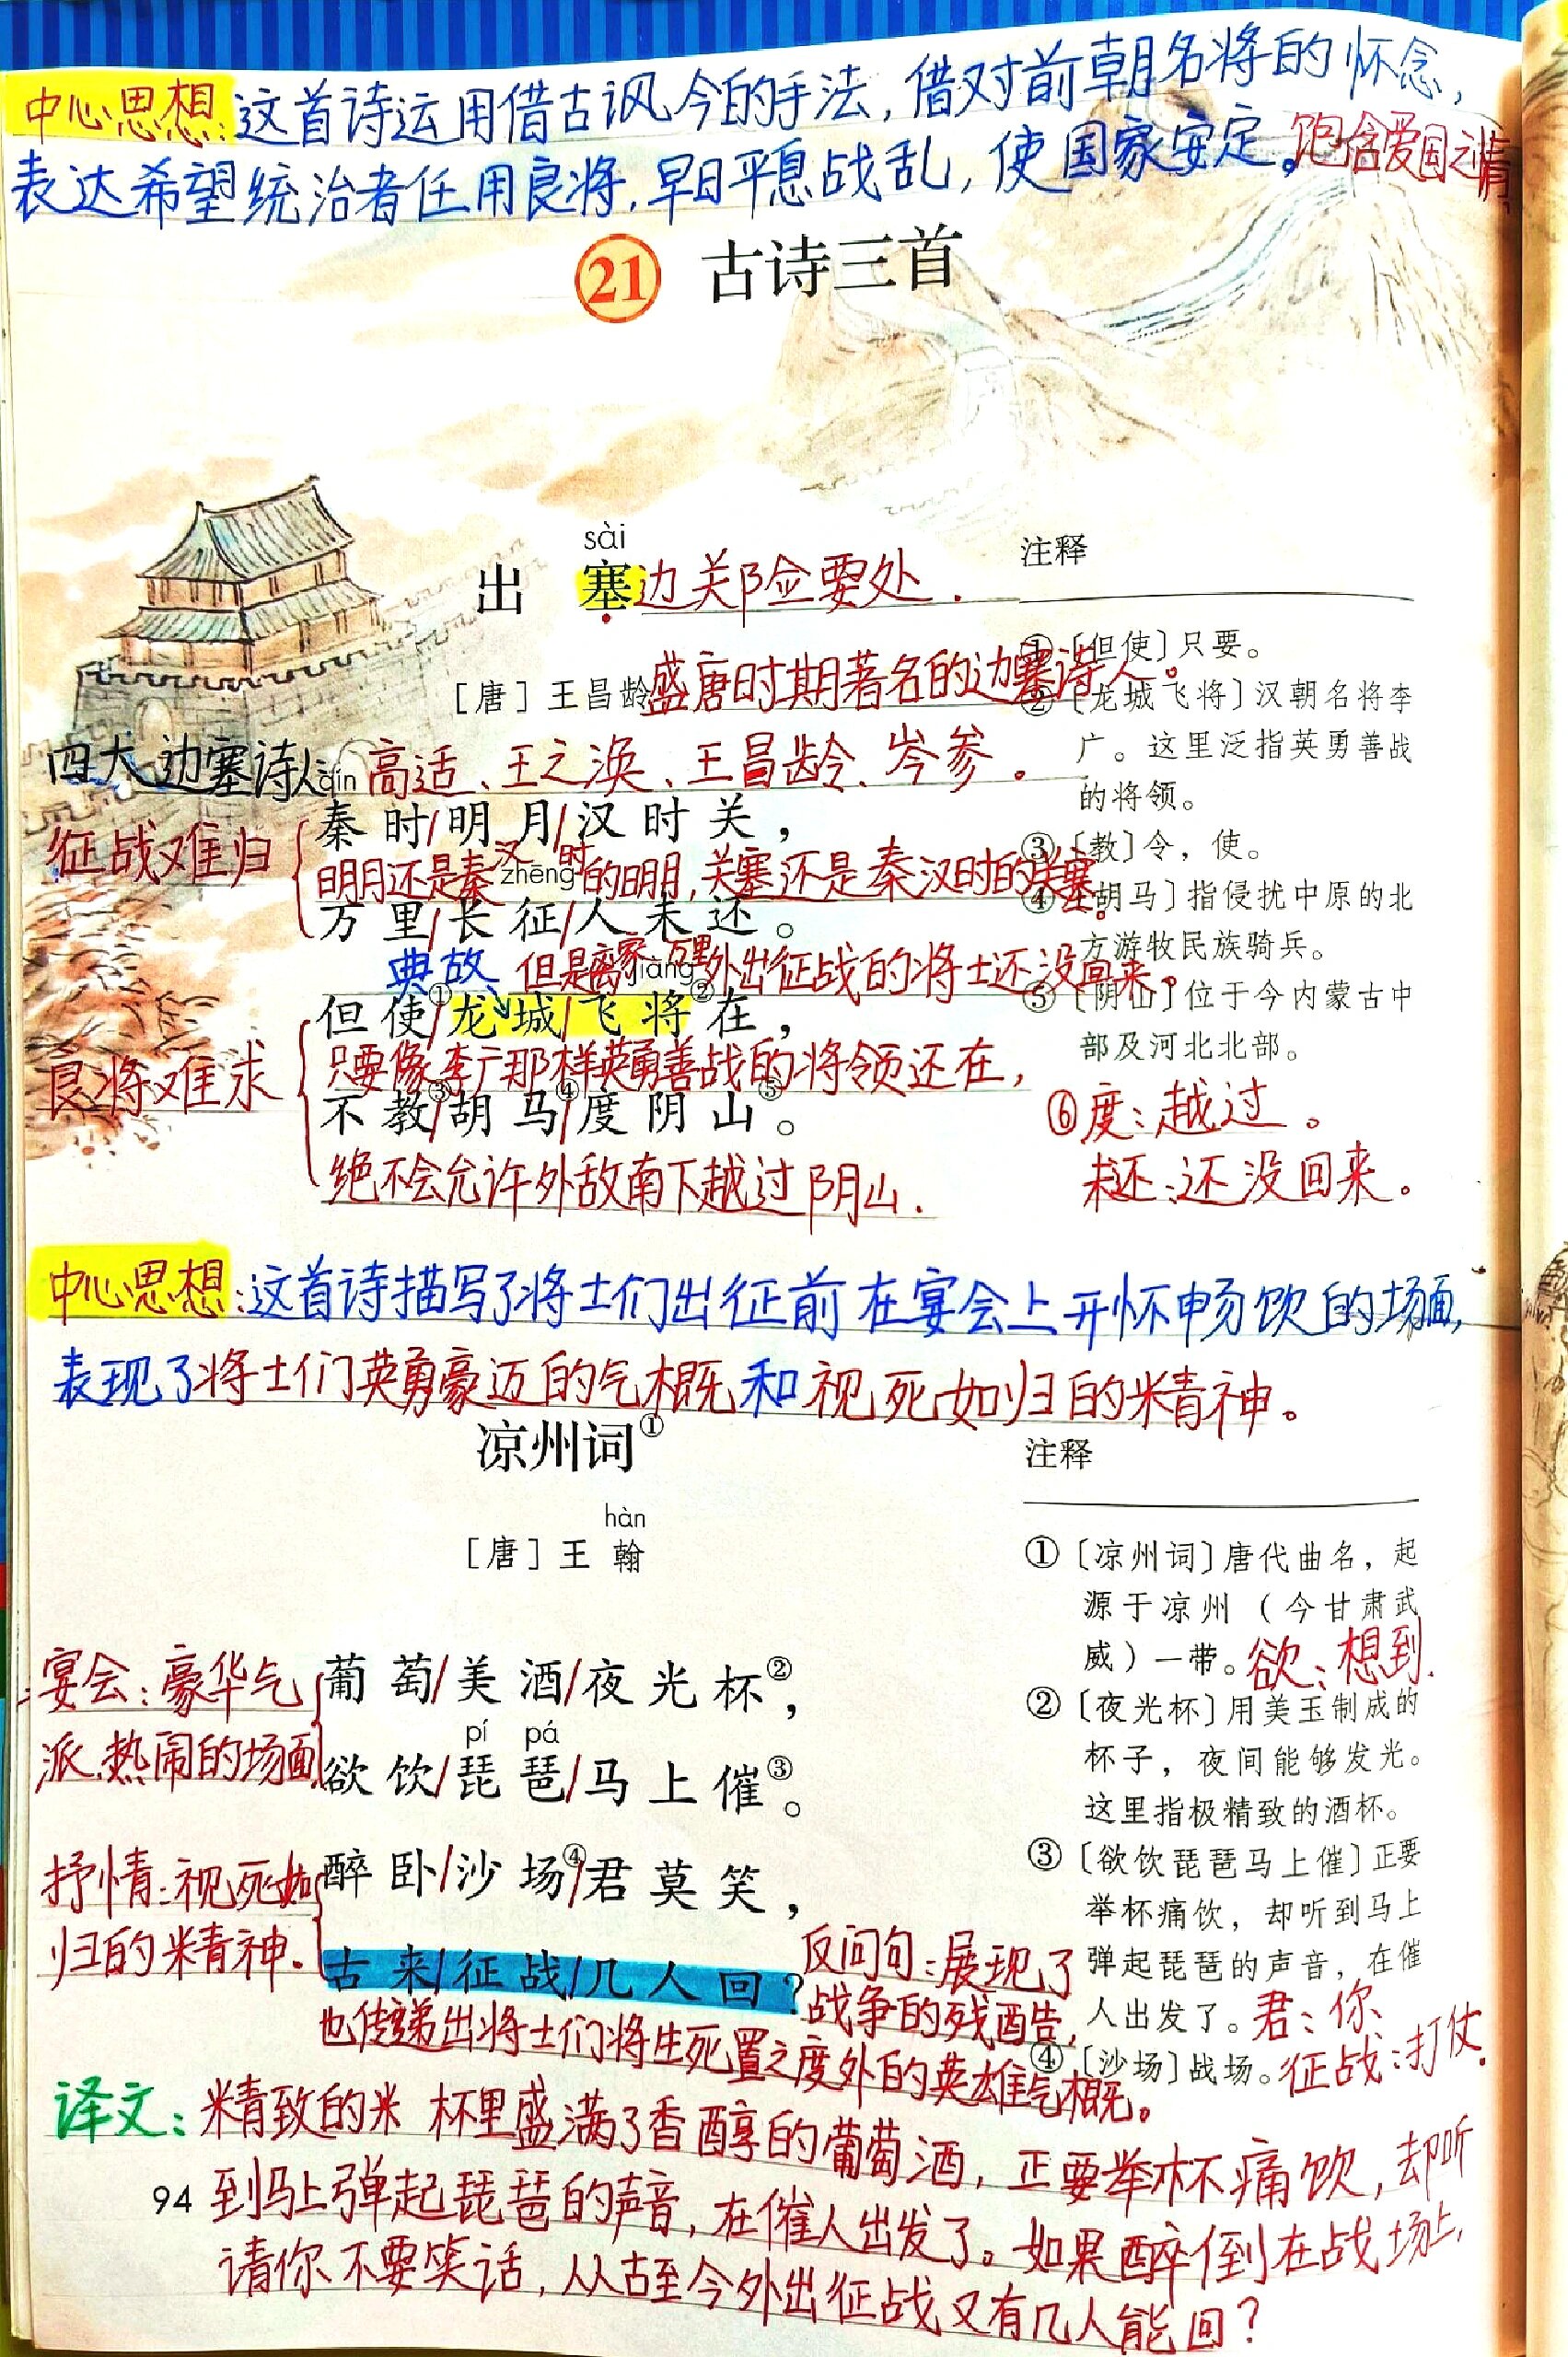 中心思想:这首诗运用借古讽今的手法,借对前朝名将的怀念,
表达希望统治者任用良将,早日平息战乱,使国家安定。饱含爱国之情
21 古诗三首
sài
出 塞 边关险要处.
[唐] 王昌龄 盛唐时期著名的边塞诗人。
四大边塞诗人 高适、王之涣、王昌龄、岑参。
qín
征战难归
秦时/明月/汉时关,
汉时
zhēng
明月还是秦的明月,关塞还是秦汉时的关塞。
万里/长征/人未还。
典故、但是离家万里外出征战的将士还没回来。
jiàng
但使①/龙城/飞将②在,
良将难求
只要像李广那样英勇善战的将领还在,
不教③/胡马④/度阴山⑤。
绝不会允许外敌南下越过阴山.
注释
①〔但使〕只要。
②〔龙城飞将〕汉朝名将李
广。这里泛指英勇善战
的将领。
③〔教〕令,使。
④〔胡马〕指侵扰中原的北
方游牧民族骑兵。
⑤〔阴山〕位于今内蒙古中
部及河北北部。
⑥度:越过。
未还:还没回来。
中心思想:这首诗描写了将士们出征前在宴会上开怀畅饮的场面,
表现了将士们英勇豪迈的气概和视死如归的精神。
凉州词①
hàn
[唐] 王 翰
宴会:豪华气
派、热闹的场面
葡萄/美酒/夜光杯②,
pí pá
欲饮/琵琶/马上催③。
抒情:视死如
归的精神.
醉卧/沙场④/君莫笑,
古来/征战/几人回?
反问句:展现了
战争的残酷,
也传递出将士们将生死置之度外的英雄气概。
注释
①〔凉州词〕唐代曲名,起
源于凉州(今甘肃武
威)一带。欲:想到.
②〔夜光杯〕用美玉制成的
杯子,夜间能够发光。
这里指极精致的酒杯。
③〔欲饮琵琶马上催〕正要
举杯痛饮,却听到马上
弹起琵琶的声音,在催
人出发了。君:你
④〔沙场〕战场。征战:打仗.
译文:精致的米 杯里盛满了香醇的葡萄酒,正要举杯痛饮,却听
到马上弹起琵琶的声音,在催人出发了。如果醉倒在战场上,
请你不要笑话,从古至今外出征战又有几人能回?
94